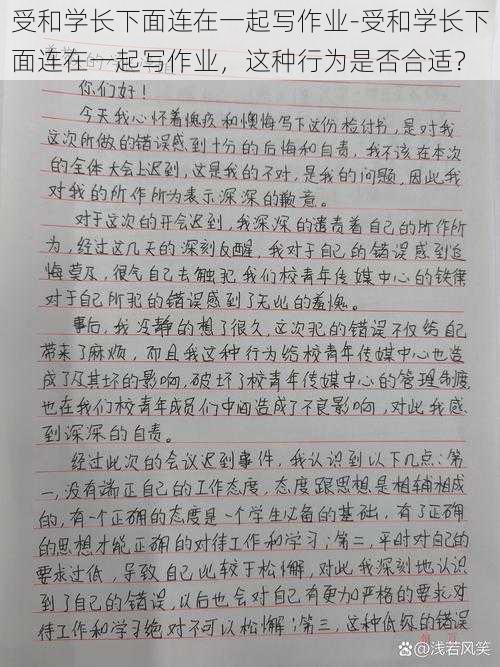 受和学长下面连在一起写作业-受和学长下
面连在一起写作业，这种行为是否合适？
你们好！
今天我心怀着愧疚和懊悔写下这份检讨书，是对我
这次所做的错误感到十分的后悔和自责，我不该在本次
的全体大会上迟到，这是我的不对，是我的问题，因此我
对我的所作所为表示深深的歉意。
对于这次的开会迟到，我深深的谴责着自己的所作所
为，经过这几天的深刻反醒，我对于自己的错误感到追
悔莫及，很气自己去触犯我们校青年传媒中心的铁律
对于自己所犯的错误感到了无比的羞愧。
事后，我冷静的想了很久，这次犯的错误不仅给自己
带来了麻烦，而且我这种行为给校青年传媒中心也造
成了及其坏的影响，破坏了校青年传媒中心的管理制度
也在我们校青年成员们中间造成了不良影响，对此我感
到深深的自责。
经过此次的会议迟到事件，我认识到以下几点：第
一，没有端正自己的工作态度，态度跟思想是相辅相成
的，有一个正确的态度是一个学生必备的基础，有了正确
的思想才能正确的对待工作和学习；第二，平时对自己的
要求过低，导致自己比较于松懈，对此我深刻地认识
到了自己的错误，以后也会对自己有更加严格的要求对
待工作和学习绝对不可以松懈；第三，这种低级的错误
知乎 @浅若风笑